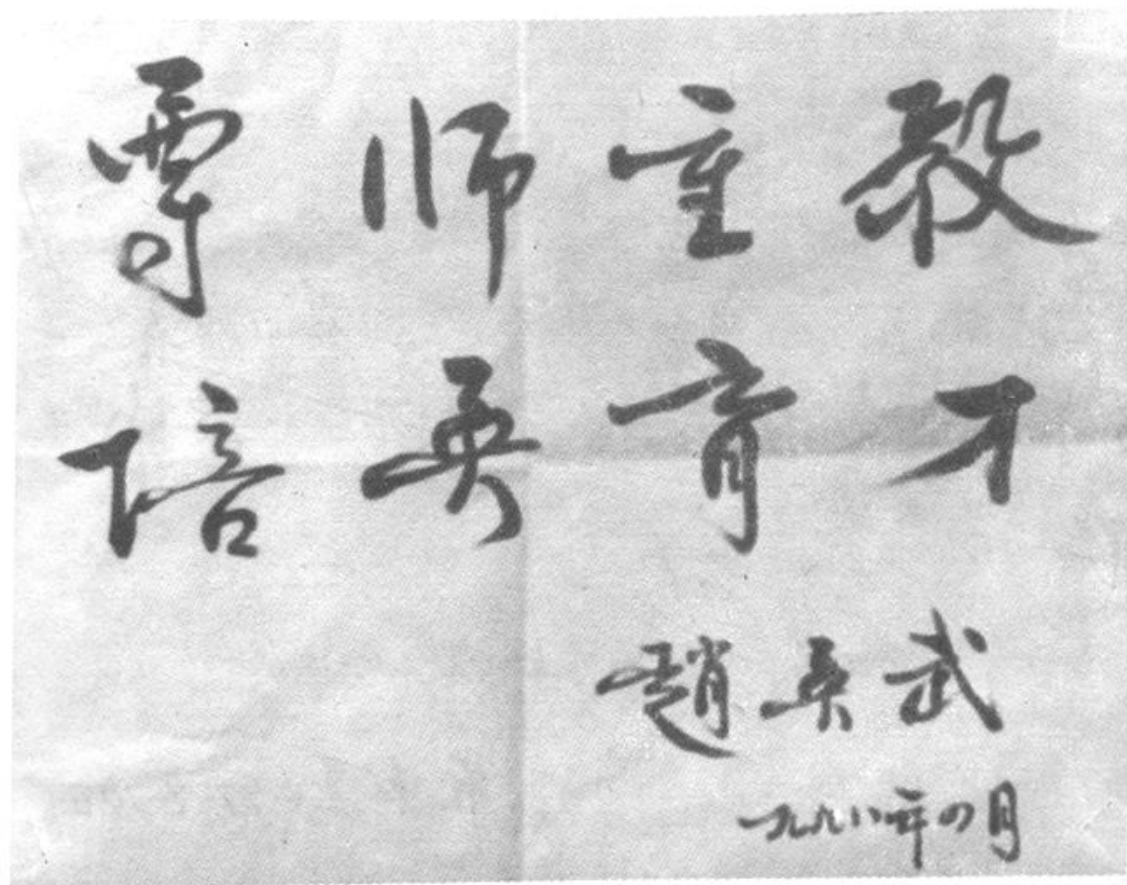 尊师重教
培英育才
趙英武
一九九八年四月